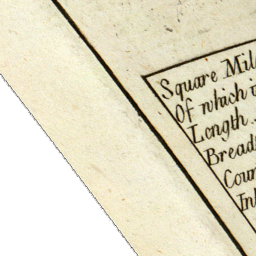 Square Mil
Of which i
Length
Bread
Coun
Inh